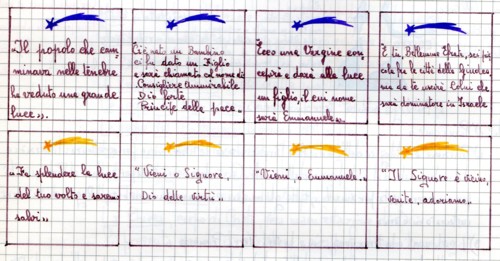 "Il popolo che cam-
minava nelle tenebre
ha veduto una grande
luce».
Ci è nato un Bambino
ci fu dato un Figlio
e sarà chiamato col nome di
Consigliere Ammirabile
Dio forte
Principe della pace.
Ecco una Vergine con-
cepirà e darà alla luce
un figlio, il cui nome
sarà Emmanuele».
E tu, Betlemme Efrata, sei pic-
cola fra le città della Giudea
ma da te uscirà Colui che
sarà dominatore in Israele
"Fa splendere la luce
del tuo volto e saremo
salvi»
"Vieni o Signore,
Dio delle virtù»
"Vieni, o Emmanuele.»
"Il Signore è vicino,
venite, adoriamo.»